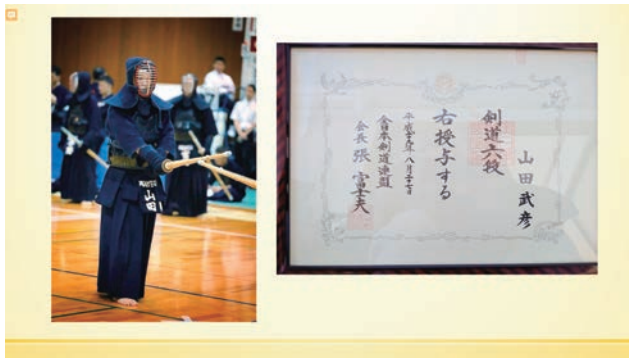 山田
山田武彦
剣道六段
右授与する
平成 八月
全日本剣道連盟
会長 張富士夫